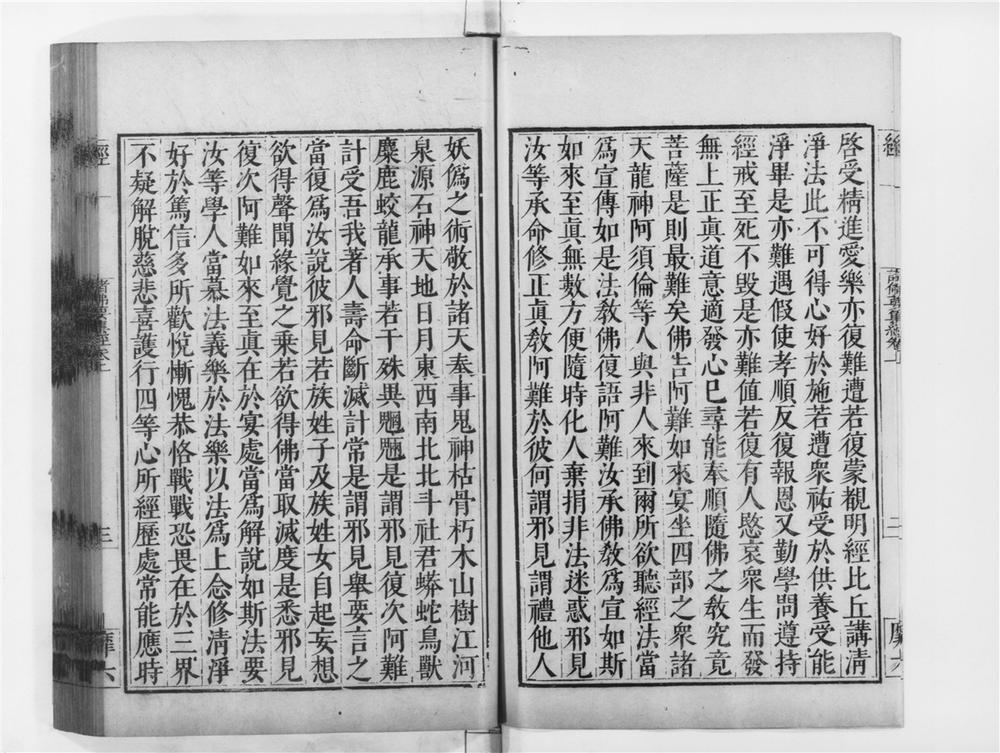 經
諸佛要集經卷上
二
糜六
啓受精進愛樂亦復難遭若復蒙覩明經比丘講清
淨法此不可得心好於施若遭衆祐受於供養受能
淨畢是亦難遇假使孝順反復報恩又勤學問遵持
經戒至死不毁是亦難值若復有人愍哀衆生而發
無上正真道意適發心已尋能奉順隨佛之教究竟
菩薩是則最難矣佛告阿難如來宴坐四部之衆諸
天龍神阿須倫等人與非人來到爾所欲聽經法當
爲宣傳如是法教佛復語阿難汝承佛教爲宣如斯
如來至真無數方便隨時化人棄捐非法迷惑邪見
汝等承命修正真教阿難於彼何謂邪見謂禮他人
妖僞之術敬於諸天奉事鬼神枯骨朽木山樹江河
泉源石神天地日月東西南北北斗社君蟒蛇鳥獸
麋鹿蛟龍承事若干殊異魍魎是謂邪見復次阿難
計受吾我著人壽命斷滅計常是謂邪見舉要言之
當復爲汝說彼邪見若族姓子及族姓女自起妄想
欲得聲聞緣覺之乗若欲得佛當取滅度是悉邪見
復次阿難如來至真在於宴處當爲解說如斯法要
汝等學人當慕法義樂於法樂以法爲上念修清淨
好於篤信多所歡悅慚愧恭恪戰戰恐畏在於三界
不疑解脫慈悲喜護行四等心所經歷處常能應時
經
諸佛要集經卷上
三
糜六